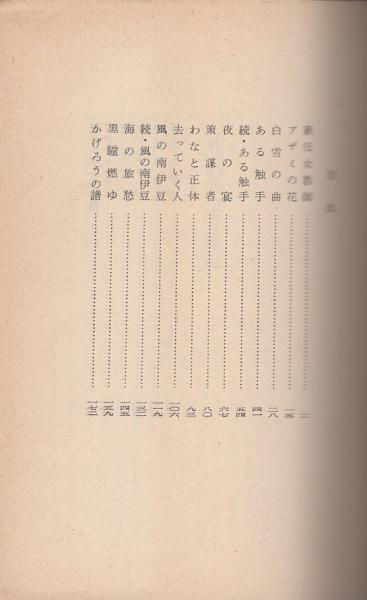 目次
新任女教師
アザミの花……一五
白雪の曲……二八
ある触手……四一
続・ある触手……五四
夜の宴……六七
策謀者……八〇
わなと正体……九三
去っていく人……一〇六
風の南伊豆……一一九
続・風の南伊豆……一三二
海の旅愁……一四五
黒瞳燃ゆ……一五九
かげろうの譜……一七二